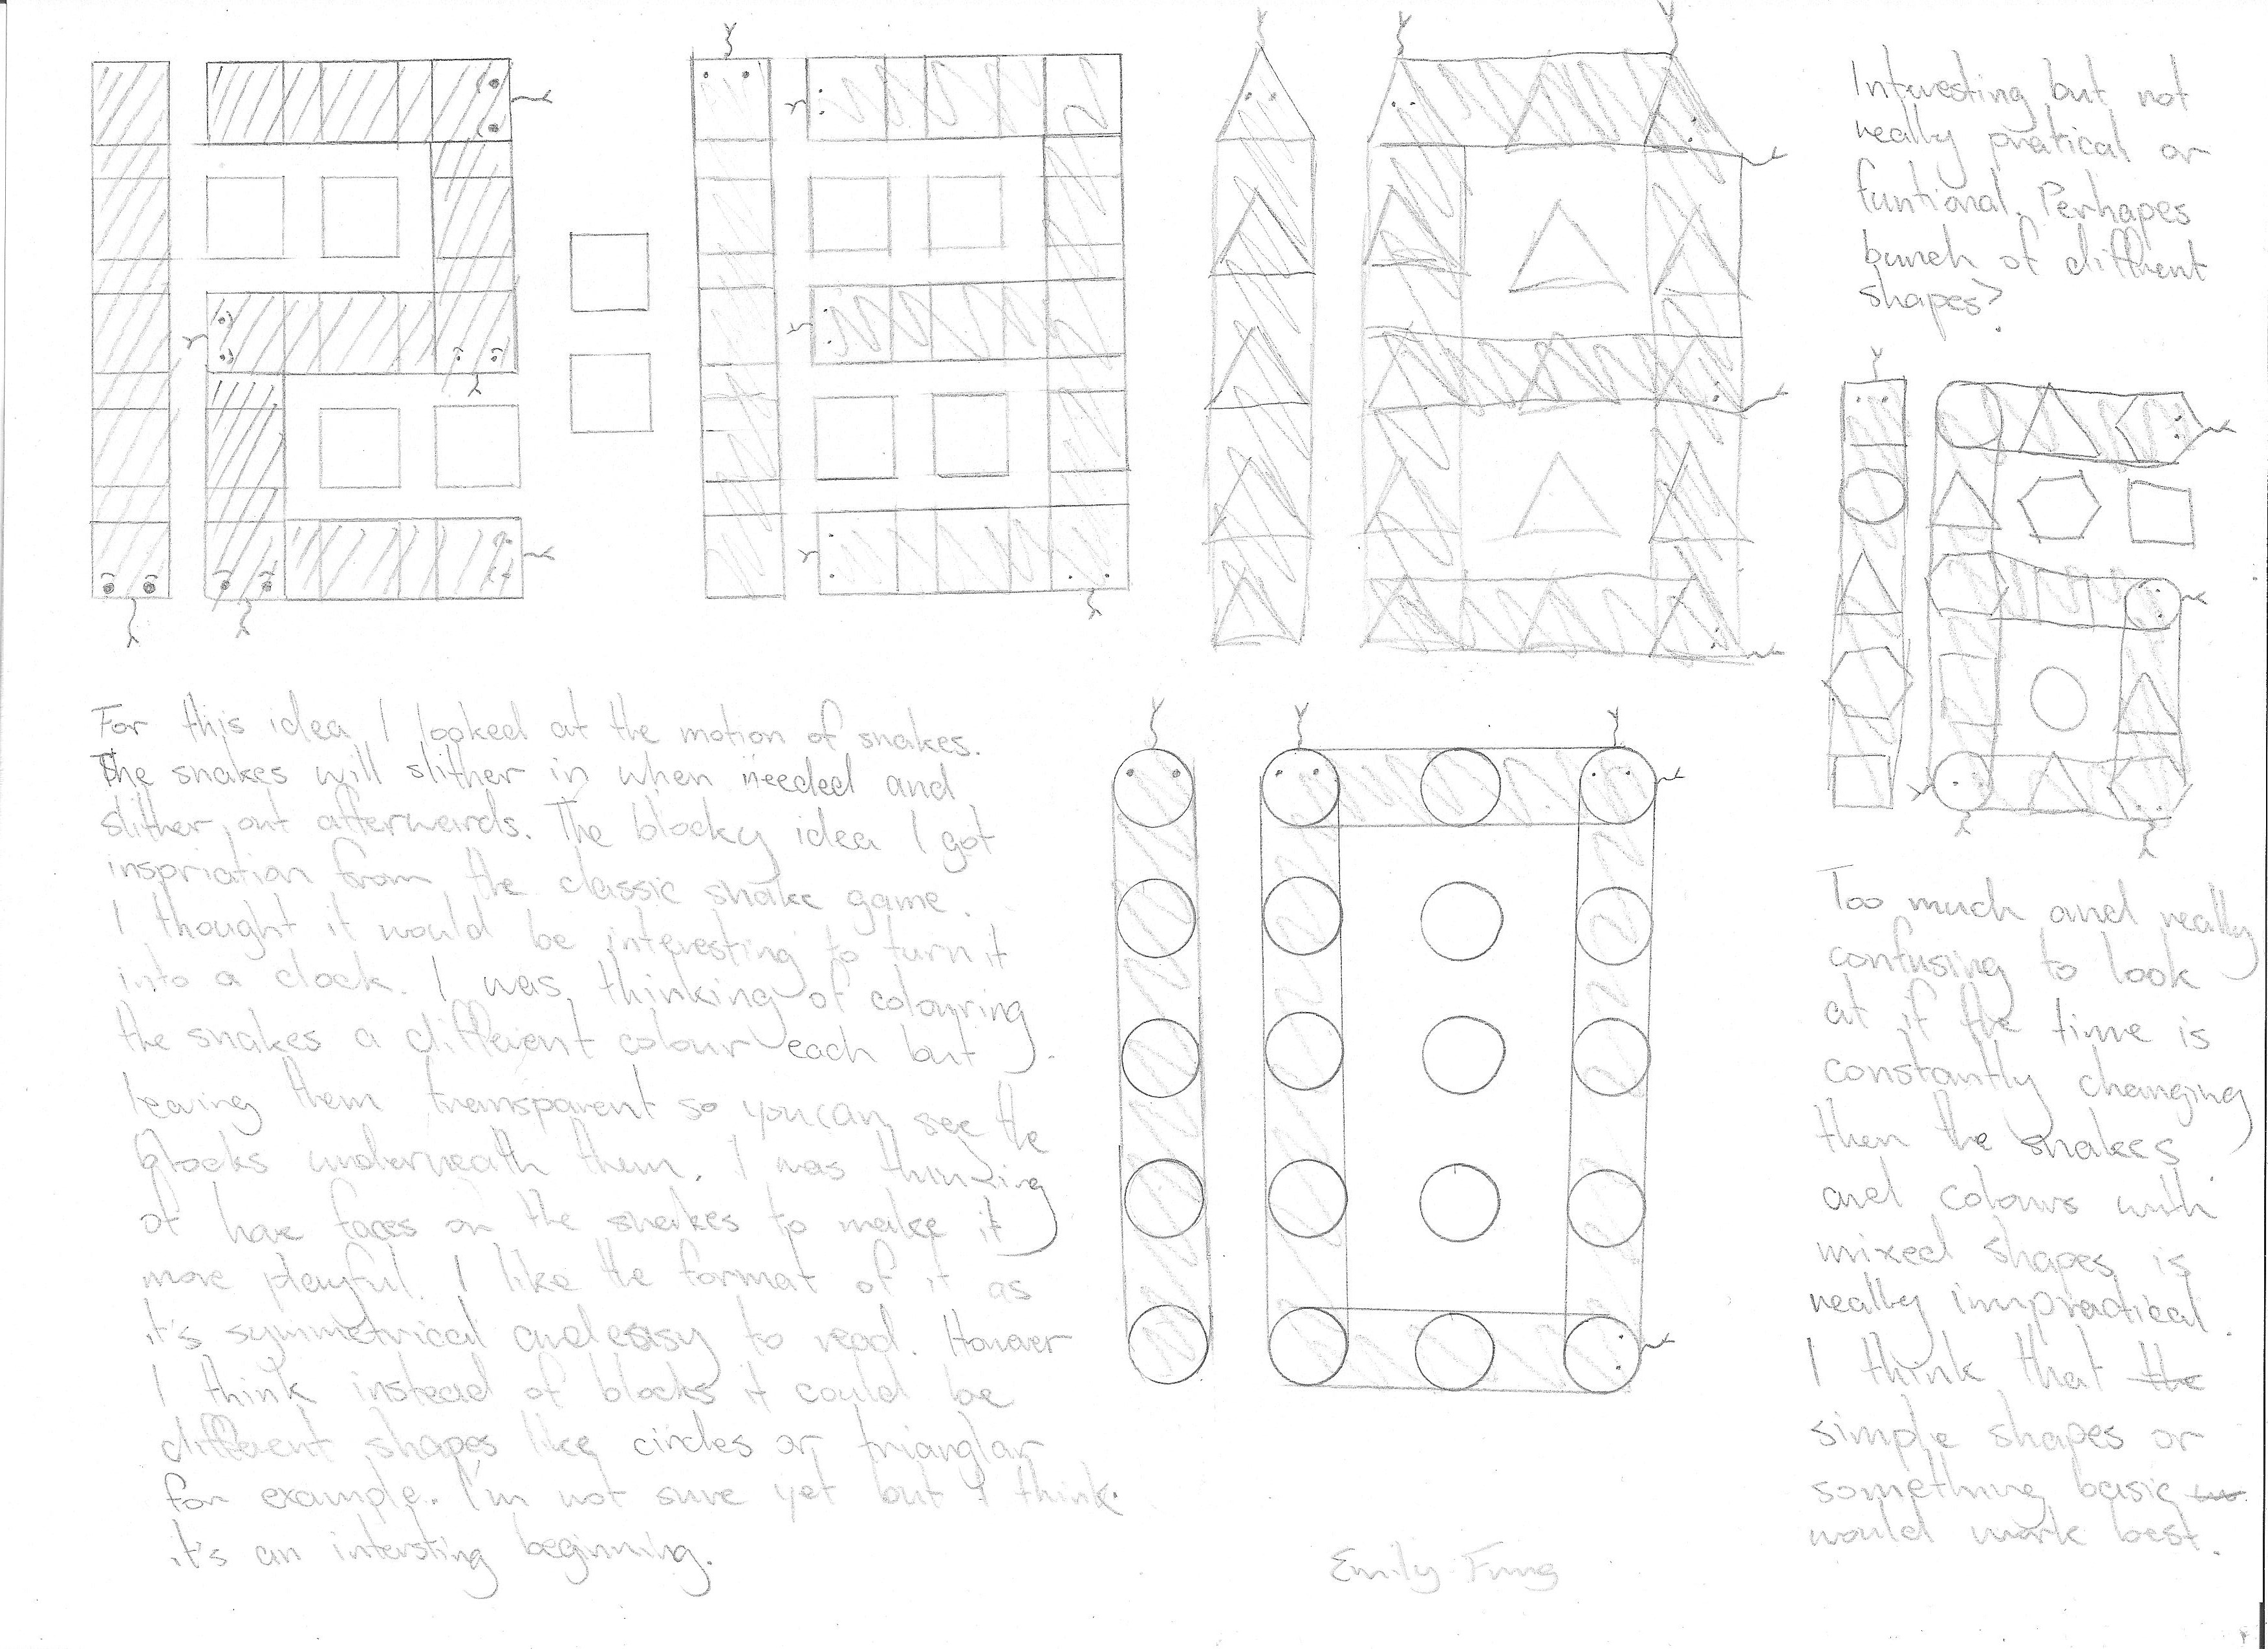 Interesting but not
really pratical or
funtional. Perhapes
bunch of different
shapes?
For this idea I looked at the motion of snakes.
The snakes will slither in when needed and
slither out afterwards. The blocky idea I got
inspriation from the classic snake game.
I thought it would be interesting to turn it
into a clock. I was thinking of colouring
the snakes a different colour each but
leaving them transparent so you can see the
blocks underneath them. I was thinking
of have faces on the snakes to make it
more playful. I like the format of it as
it's symmetrical and easy to read. However
I think instead of blocks it could be
different shapes like circles or trianglar
for example. I'm not sure yet but I think
it's an intersting beginning.
Too much and really
confusing to look
at if the time is
constantly changing
then the snakes
and colours with
mixed shapes is
really impractical.
I think that the
simple shapes or
something basic
would work best.
Emily Fung